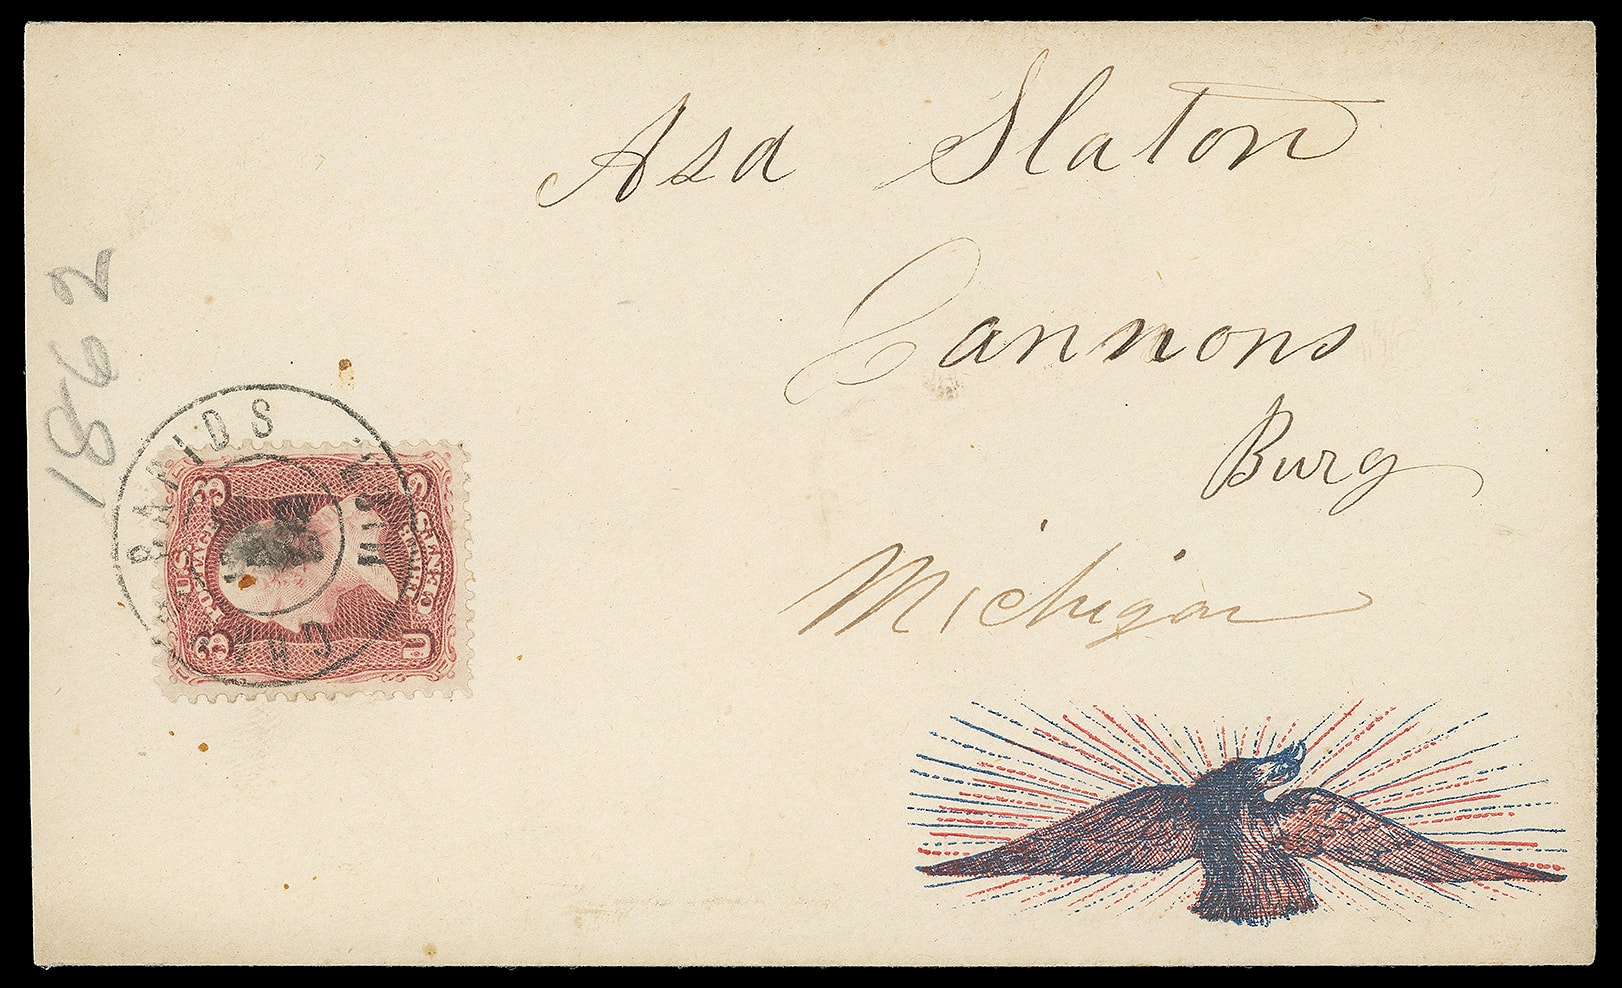 Asa Slaton
Cannons
Burg
Michigan
1862
RAPIDS
MICH
U.S. POSTAGE
THREE CENTS
3 3
U S